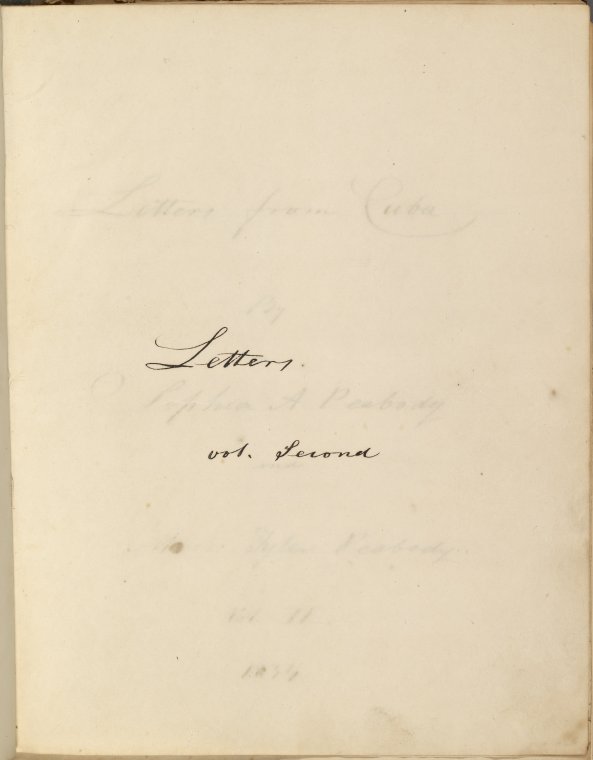 Letters from Cuba
By
Letters.
Sophia A Peabody
vol. Second
and
Mary Tyler Peabody.
Vol. II
1834